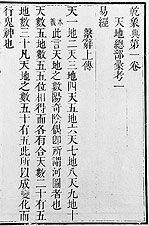 乾象典第一卷
天地總部彙考一
易經
繫辭上傳
天一地二天三地四天五地六天七地八天九地十
本義此言天地之數陽奇陰偶即所謂河圖者也
天數五地數五五位相得而各有合天數二十有五
地數三十凡天地之數五十有五此所以成變化而
行鬼神也